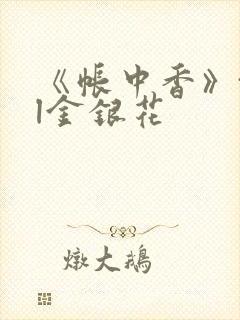 《帐中香》
l金银花
燉大鹅